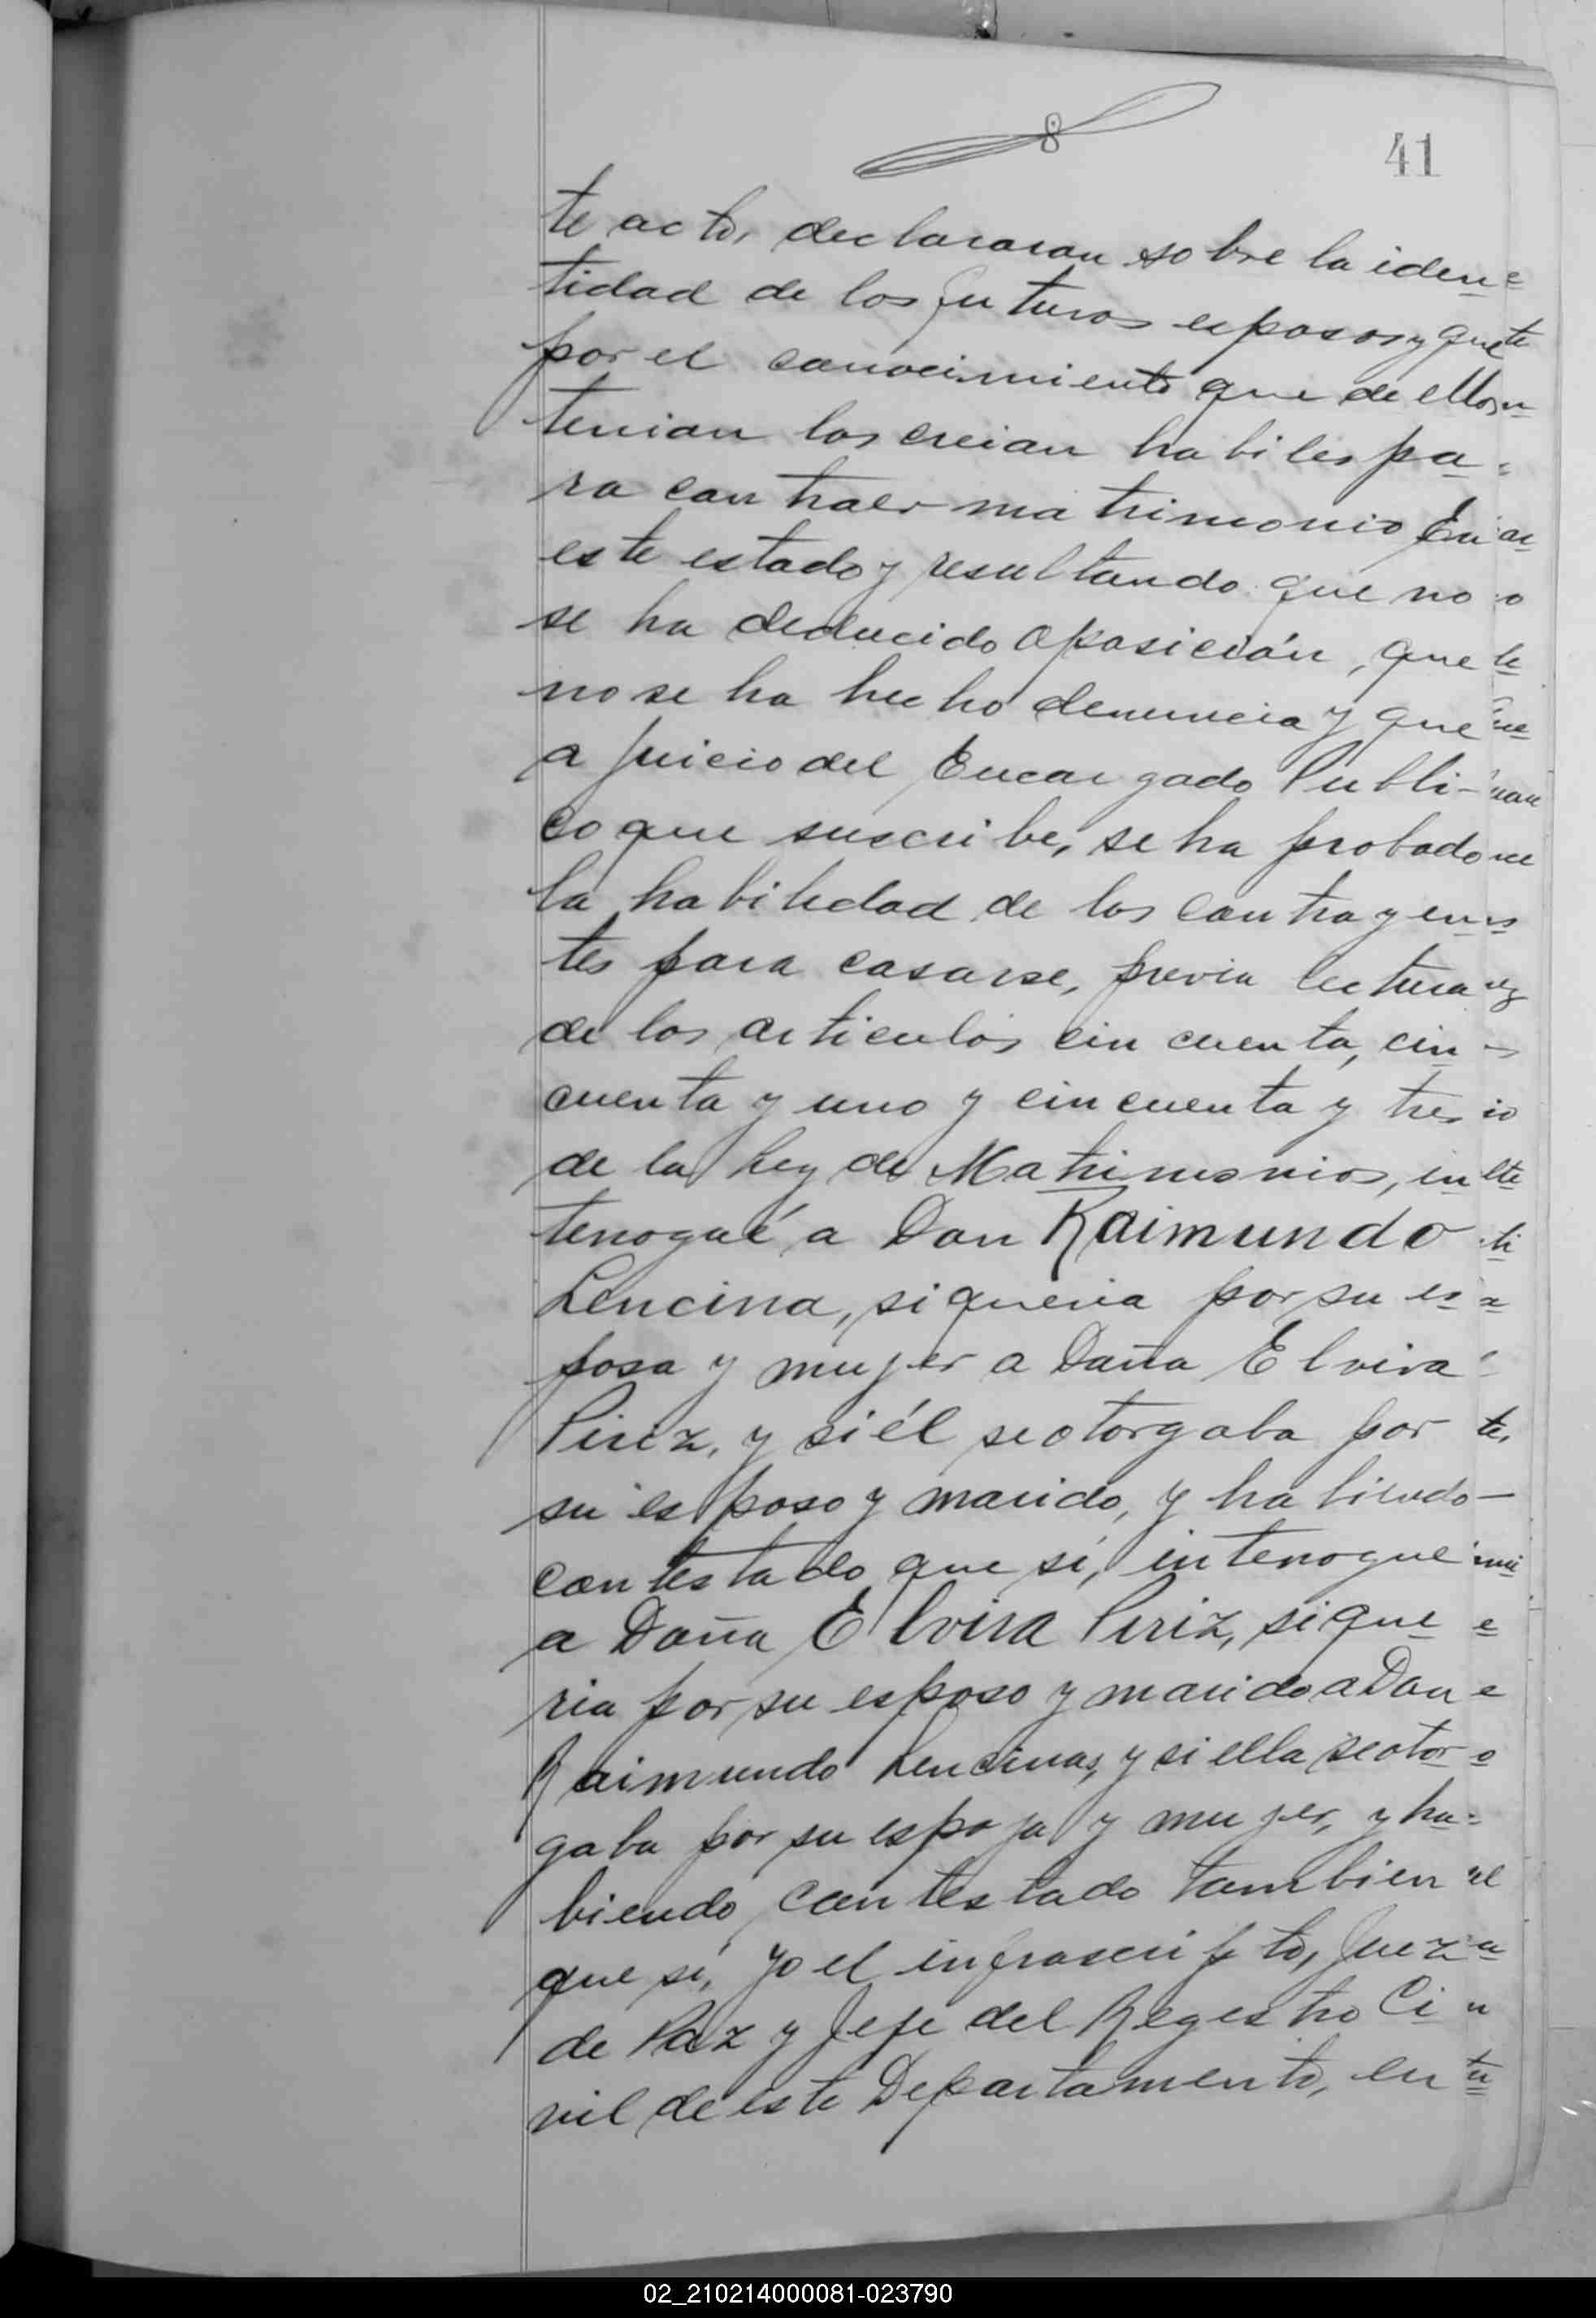 8
41
te acto, declararan sobre la iden
tidad de los futuros esposos y que
por el conocimiento que de ellos
tenian los creian habiles pa-
ra contraer matrimonio En
este estado y resultando que no
se ha deducido oposición, que
no se ha hecho denuncia y que
a juicio del Encargado Publi-
co que suscribe, se ha probado
la habilidad de los contrayen
tes para casarse, previa lectura
de los articulos cincuenta, cin
cuenta y uno y cincuenta y tres
de la Ley de Matrimonios, in
terrogué a Don Raimundo
Lencina, si queria por su es
posa y mujer a Doña Elvira
Piriz, y si él se otorgaba por
su esposo y marido, y habiendo
contestado que sí, interrogue
a Doña Elvira Piriz, si que
ria por su esposo y marido a Don
Raimundo Lencinas, y si ella se otor
gaba por su esposa y mujer, y ha-
biendo contestado tambien
que sí, yo el infrascripto, Juez
de Paz y Jefe del Registro Ci
vil de este Departamento, en
02_210214000081-023790